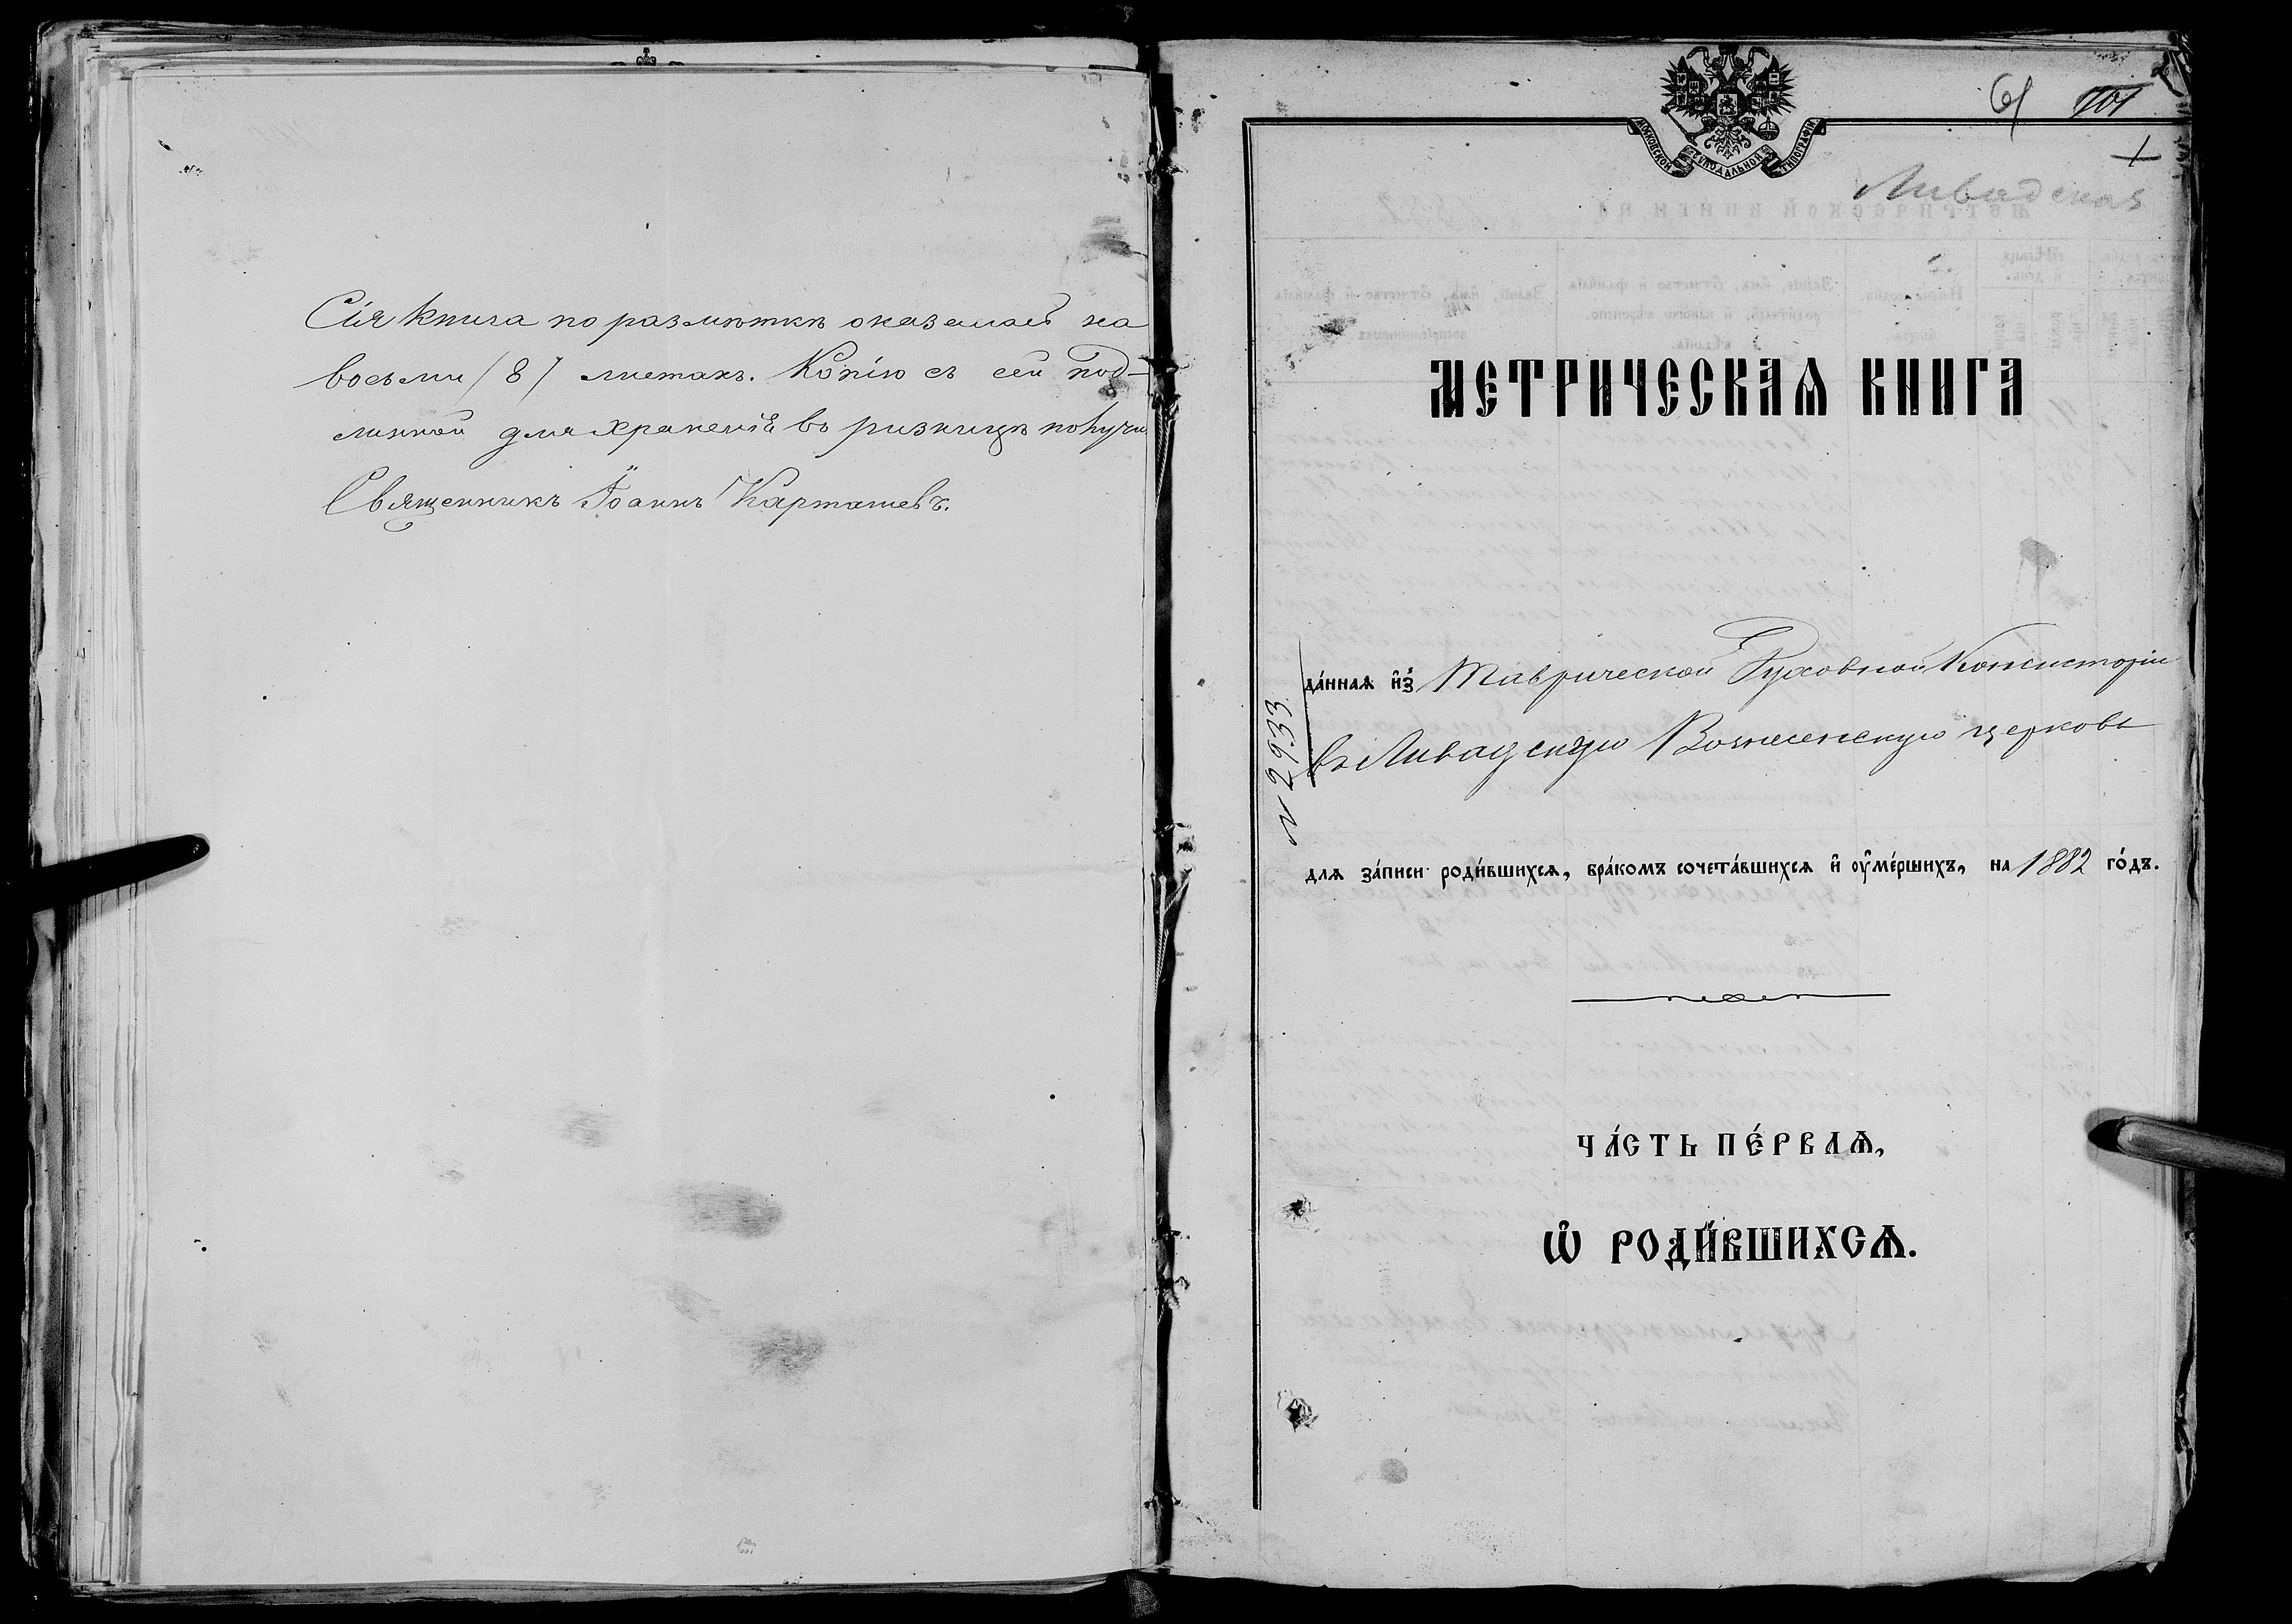 Сія книга по размѣткѣ оказалась на
восьми /8/ листахъ. Копію съ сей под-
линной для храненія въ ризницѣ получи
Священникъ Іоаннъ Карташевъ.
61 101
1
МОСКОВСКОЙ СѴНОДАЛЬНОЙ ТИПОГРАФІИ
Ливадская
МЕТРИЧЕСКАѦ КНИГА
да́ннаѧ и҆з̾ Таврической Духовной Консисторіи
въ Ливадскую Вознесенскую церковь
№ 2933
длѧ за́писи роди́вшихсѧ, бра́комъ сочета́вшихсѧ и҆ ᲂу҆ме́ршихъ, на 1882 го́дъ.
ЧА́СТЬ ПЕ́РВАѦ,
Ѡ҆ РОДИ́ВШИХСѦ.